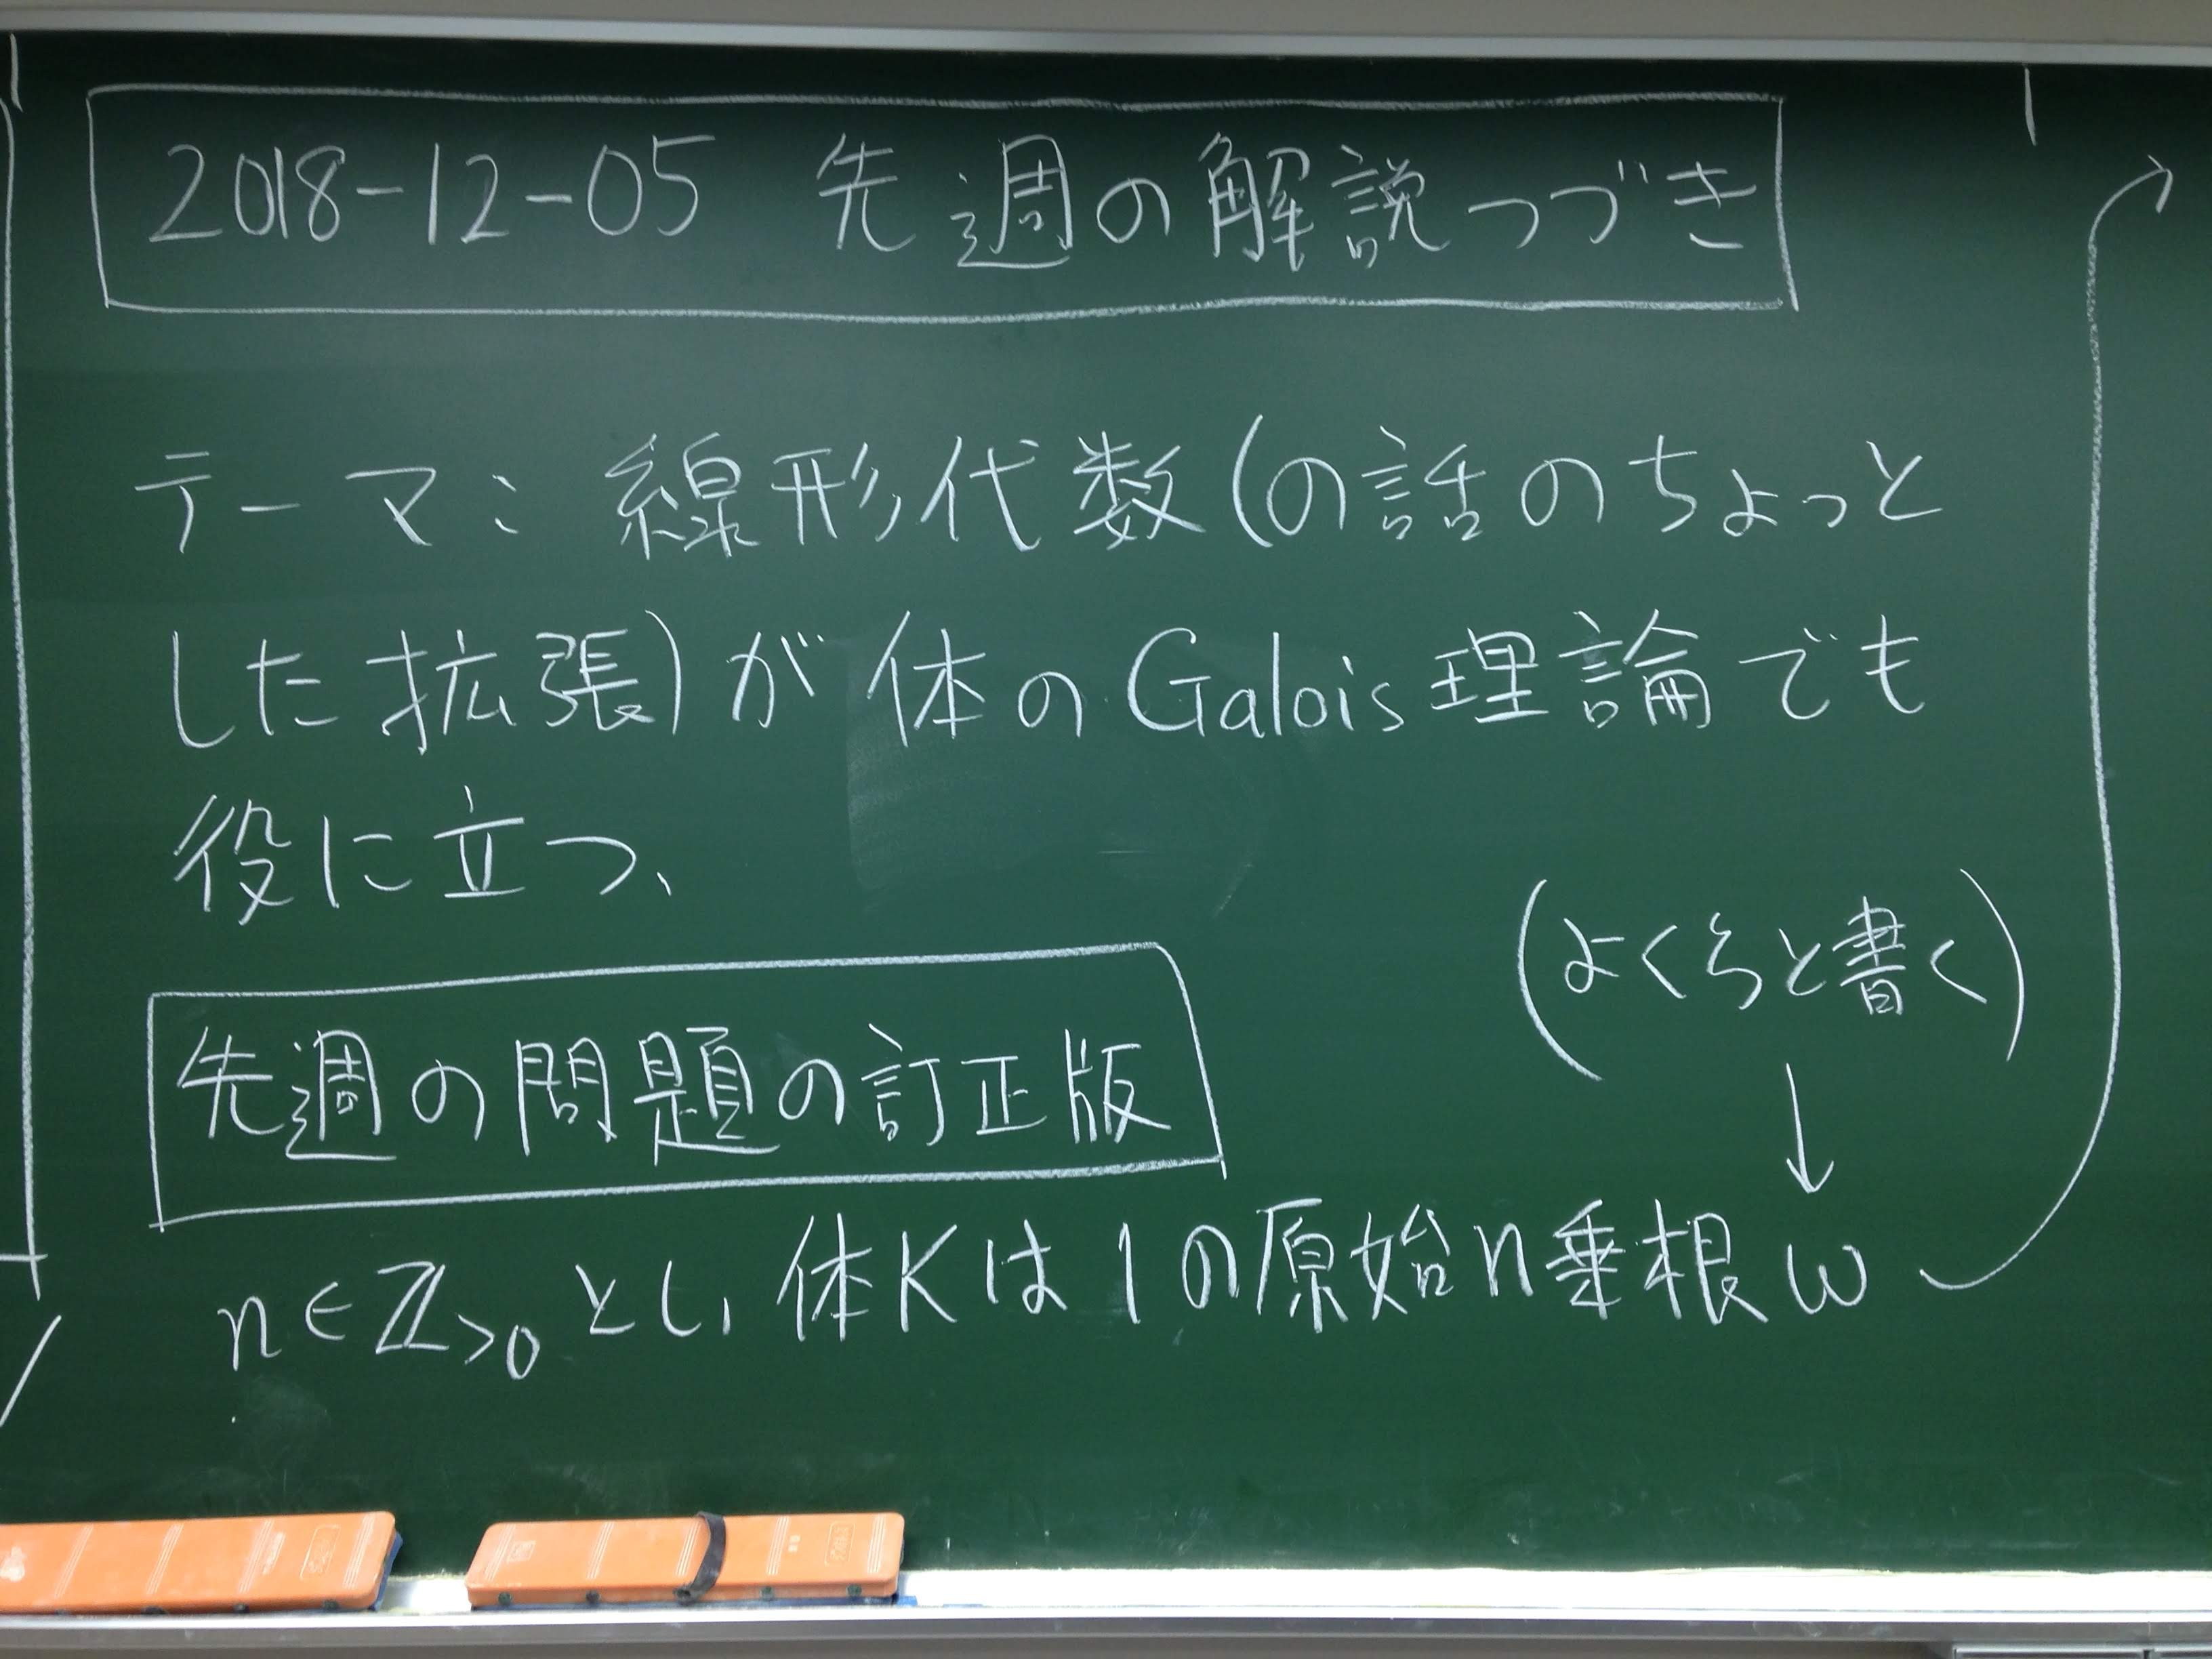 2018-12-05 先週の解説つづき
テーマ: 線形代数(の話のちょっと
した拡張)が体のGalois理論でも
役に立つ、
(よくζと書く)
先週の問題の訂正版
n∈ℤ>0とし, 体Kは1の原始n乗根ω